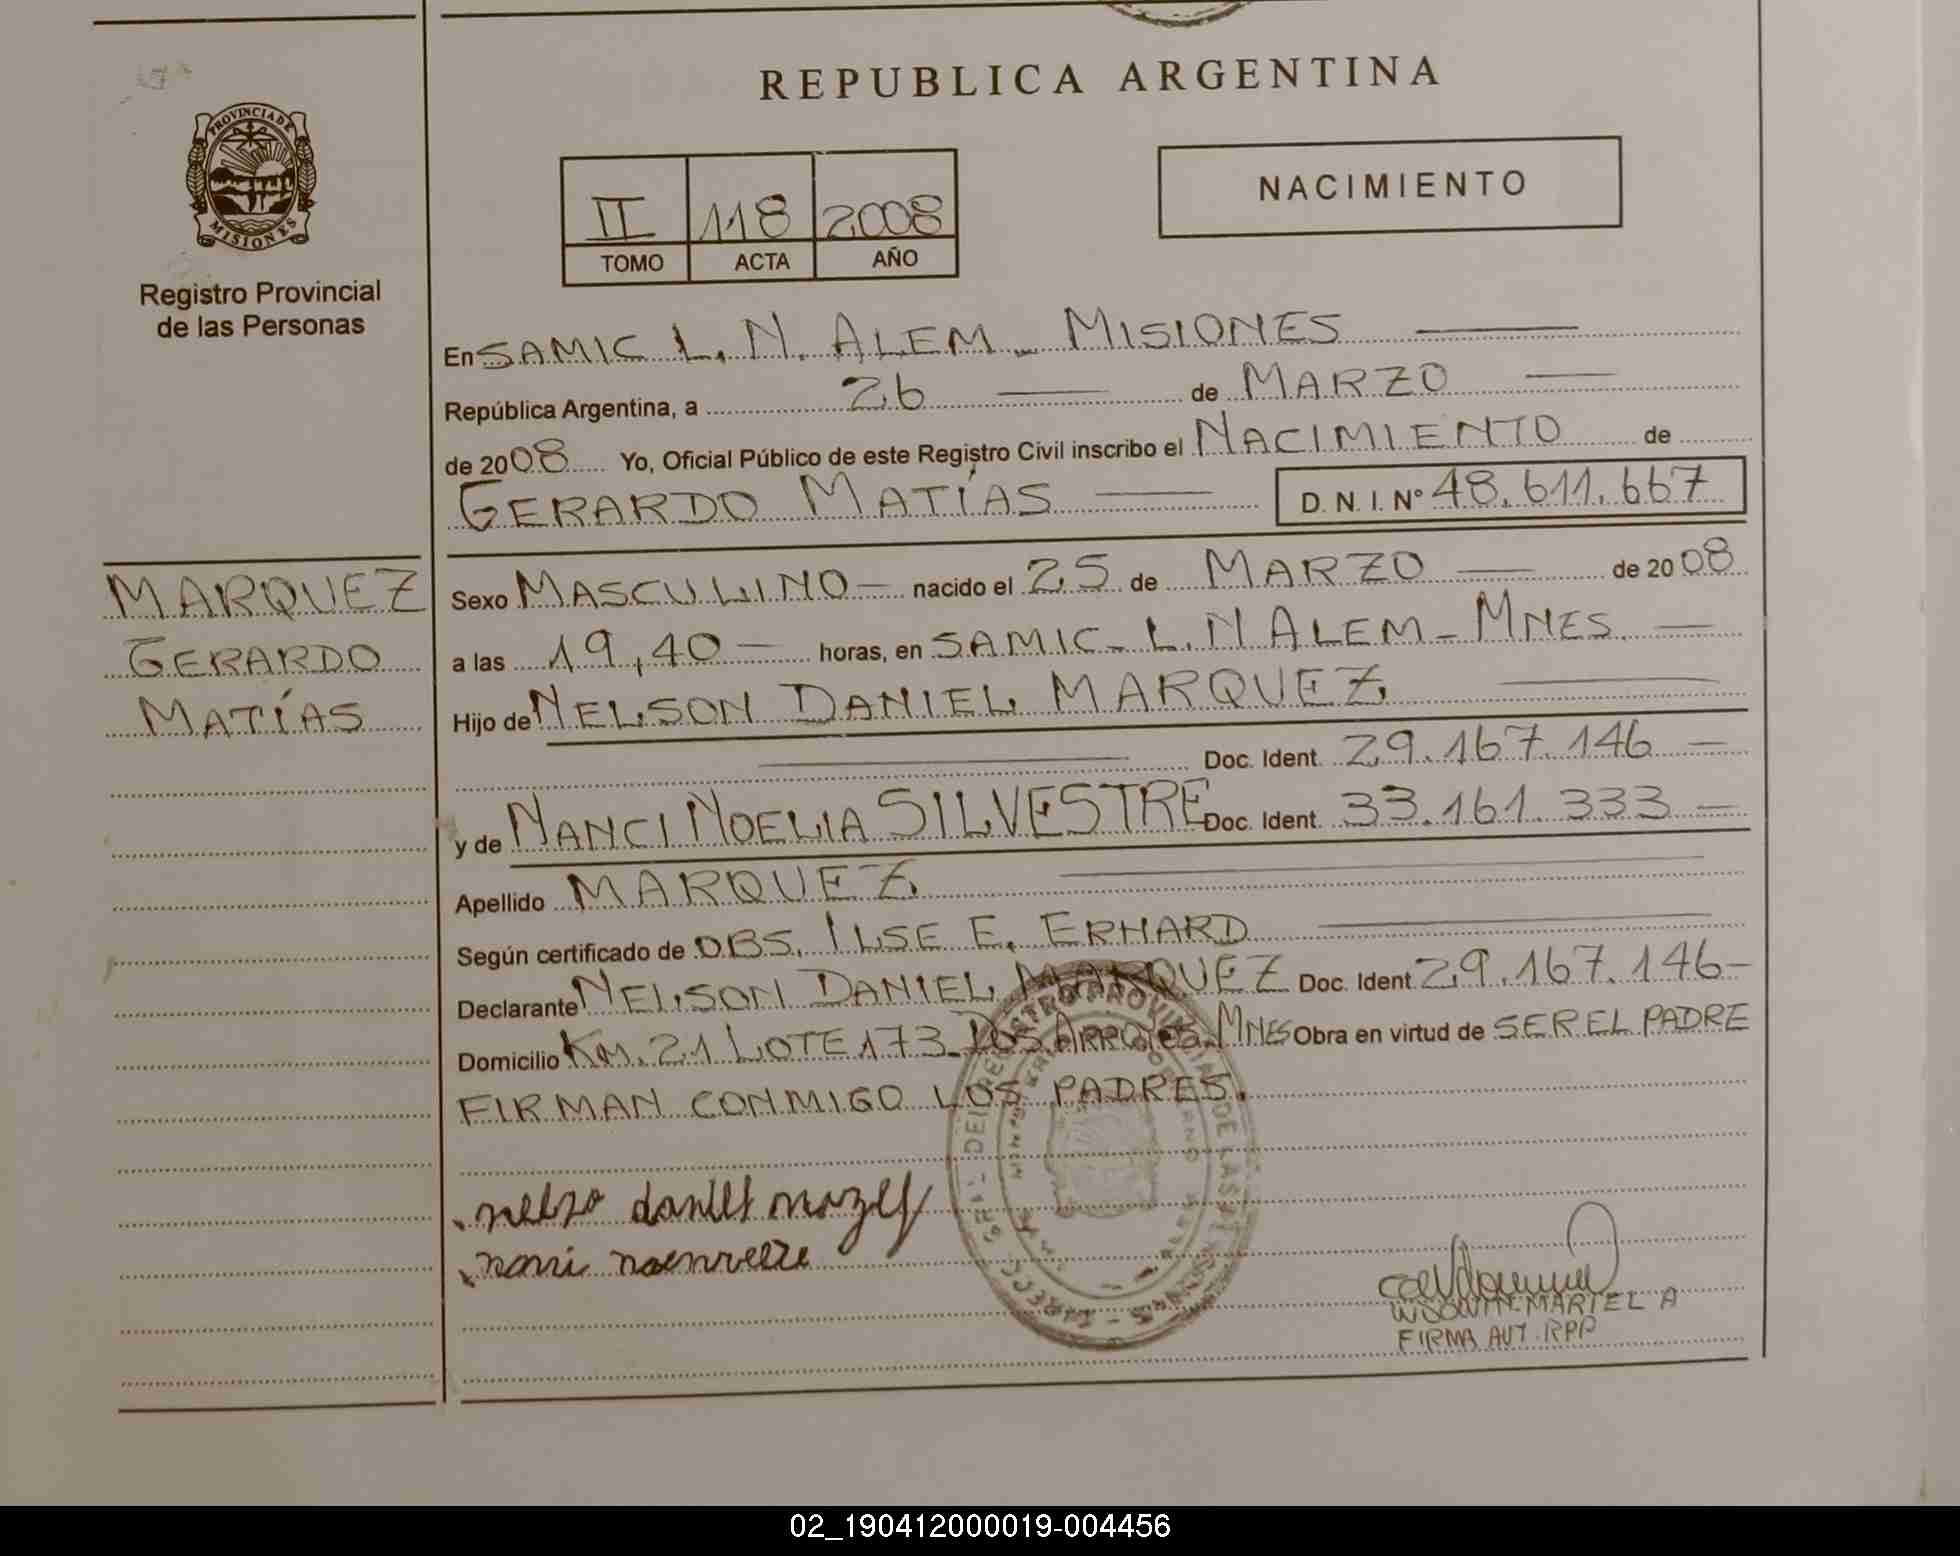 REPUBLICA ARGENTINA
PROVINCIA DE MISIONES
Registro Provincial
de las Personas
II 118 2008
TOMO ACTA AÑO
NACIMIENTO
En SAMIC L. N. ALEM - MISIONES
República Argentina, a 26 de MARZO
de 2008 Yo, Oficial Público de este Registro Civil inscribo el NACIMIENTO de
GERARDO MATÍAS D. N. I. Nº 48.611.667
MARQUEZ
GERARDO
MATÍAS
Sexo MASCULINO - nacido el 25 de MARZO de 2008
a las 19,40 horas, en SAMIC - L. N ALEM - MNES
Hijo de NELSON DANIEL MARQUEZ
Doc. Ident. 29.167.146
y de NANCI NOELIA SILVESTRE Doc. Ident. 33.161.333
Apellido MARQUEZ
Según certificado de OBS. ILSE E. ERHARD
Declarante NELSON DANIEL MARQUEZ Doc. Ident 29.167.146
Domicilio KM. 21 LOTE 173 - DOS ARROYOS. MNES Obra en virtud de SER EL PADRE
FIRMAN CONMIGO LOS PADRES.
MARIEL A
FIRMA AUT. RPP
02_190412000019-004456